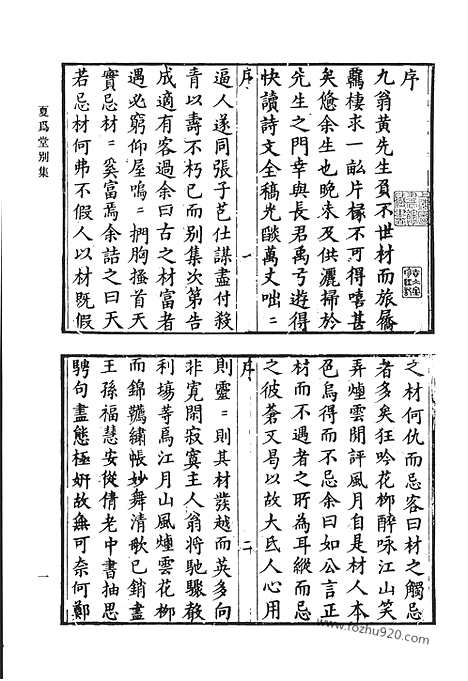 夏爲堂別集
序
九翁黃先生負不世材而旅
鸘棲求一畝片椽不可得嘻甚
矣慫余生也晚未及供灑掃於
先生之門幸與長君禹弓遊得
快讀詩文全稿光燄萬丈咄〻
序
一
逼人遂同張子邑仕謀盡付殺
青以壽不朽已而別集次第告
成適有客過余曰古之材富者
遇必窮仰屋嗚〻捫胸搔首天
實忌材〻奚富焉余詰之曰天
若忌材何弗不假人以材既假
之材何仇而忌客曰材之觸忌
者多矣狂吟花柳醉咏江山笑
弄煙雲閒評風月自是材人本
色烏得而不忌余曰如公言正
材而不遇者之所為耳縱而忌
之彼蒼又曷以故大氐人心用
序
二
則靈〻則其材發越而英多向
非寬閑寂寞主人翁將馳驟榖
利塲等爲江月山風煙雲花柳
而錦韉繡帳妙舞清歌已銷盡
王孫福慧安從倩老中書抽思
騁句盡態極妍故無可奈何鄭
一
www.fozhu920.com